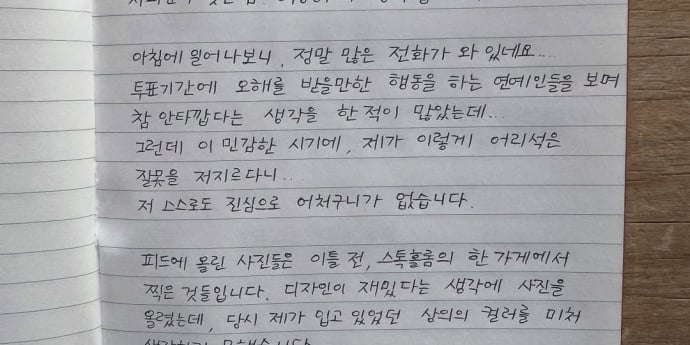 아침에 일어나보니, 정말 많은 전화가 와 있네요....
투표기간에 오해를 받을만한 행동을 하는 연예인들을 보며
참 안타깝다는 생각을 한 적이 많았는데...
그런데 이 민감한 시기에, 제가 이렇게 어리석은
잘못을 저지르다니...
저 스스로도 진심으로 어처구니가 없습니다.
피드에 올린 사진들은 이틀 전, 스톡홀롬의 한 가게에서
찍은 것들입니다. 디자인이 재밌다는 생각에 사진을
올렸는데, 당시 제가 입고 있었던 상의의 컬러를 미처